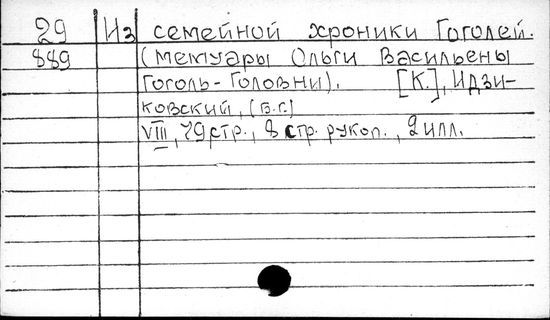 29 Из семейной хроники Гоголей.
889 (мемуары Ольги Васильевны
Гоголь-Головни). [К.], Идзи-
ковский, (б.г.)
VIII, 79 стр., 8 стр. рукоп., 2 илл.